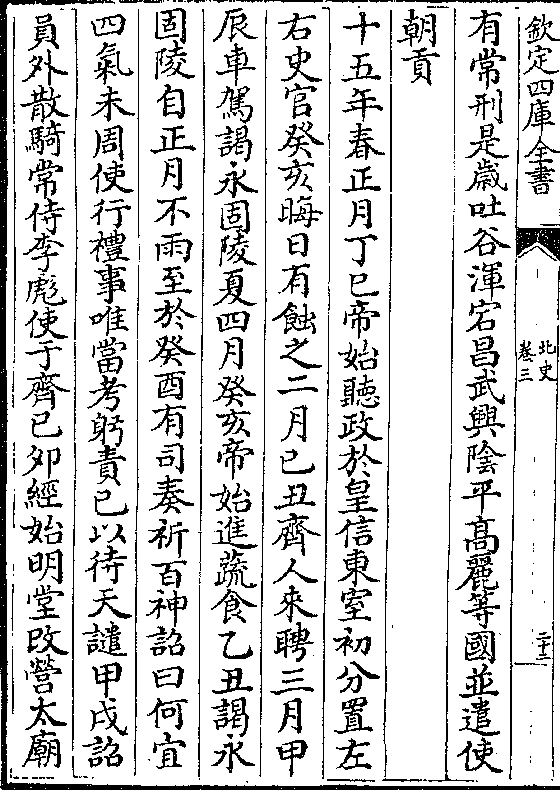 欽定四庫全書
北史
卷三
二十二
有常刑是歲吐谷渾宕昌武興陰平髙麗等國並遣使
朝貢
十五年春正月丁巳帝始聽政於皇信東室初分置左
右史官癸亥晦日有蝕之二月己丑齊人來聘三月甲
辰車駕謁永固陵夏四月癸亥帝始進蔬食乙丑謁永
固陵自正月不雨至於癸酉有司奏祈百神詔曰何宜
四氣未周使行禮事唯當考躬責己以待天譴甲戌詔
員外散騎常侍李彪使于齊己夘經始明堂改營太廟